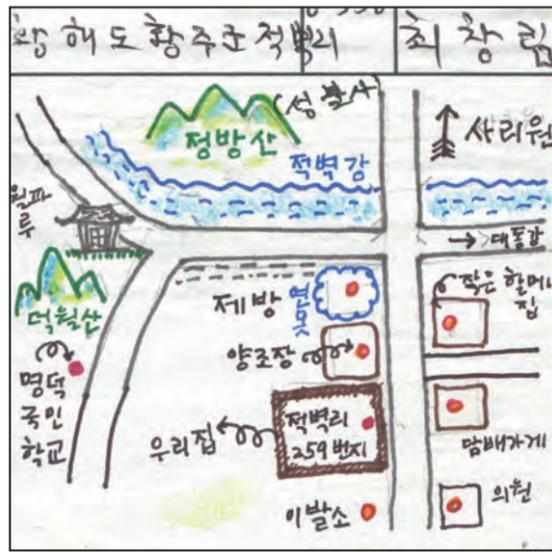 황해도황주군적벽리
최창립
(성불사)
정방산
적벽강
사리원
월파
루
→대동강
덕월산
제방
연
못
작은 할머니
집
양조장
명덕
국민
학교
우리집
적벽리
259번지
담배가게
이발소
의원